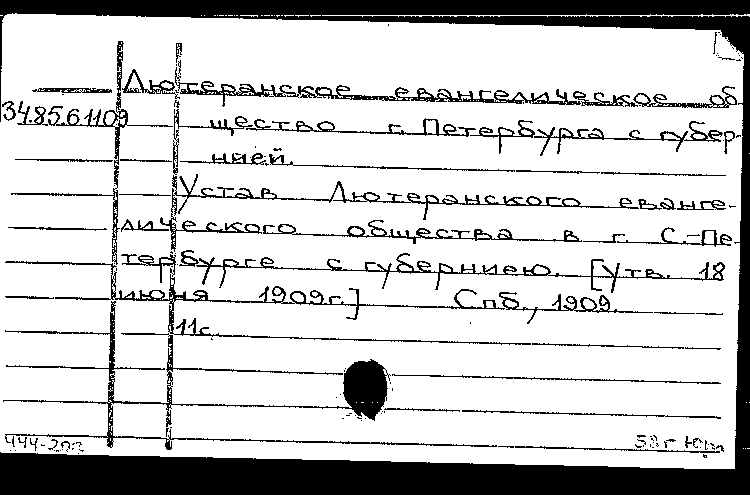 Лютеранское евангелическое об
34.85.6.1109 щество г. Петербурга с губер-
нией.
Устав Лютеранского еванге-
лического общества в г. С.-Пе-
тербурге с губерниею. [Утв. 18
июня 1909г.] Спб., 1909.
11с.
58г